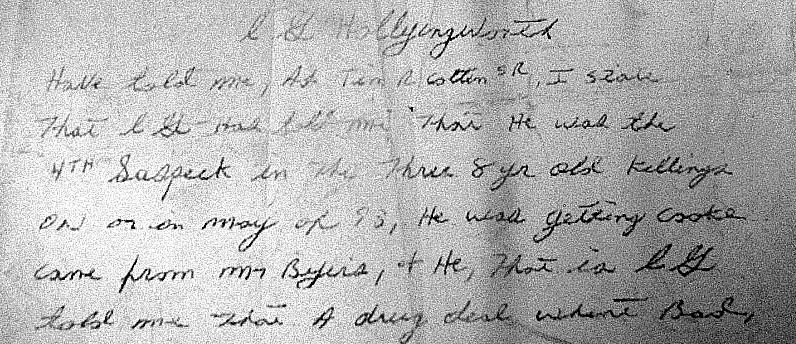 L G Hollyingworth
Have told me, As Tim R Cotten SR, I state
That L G Has told me That He was the
4TH Suspeck in the Three 8 yr old Killings
on or on may of 93, He was getting cooke
came from mr Byers, + He, That is L G
told me that A drug deal whent Bad,